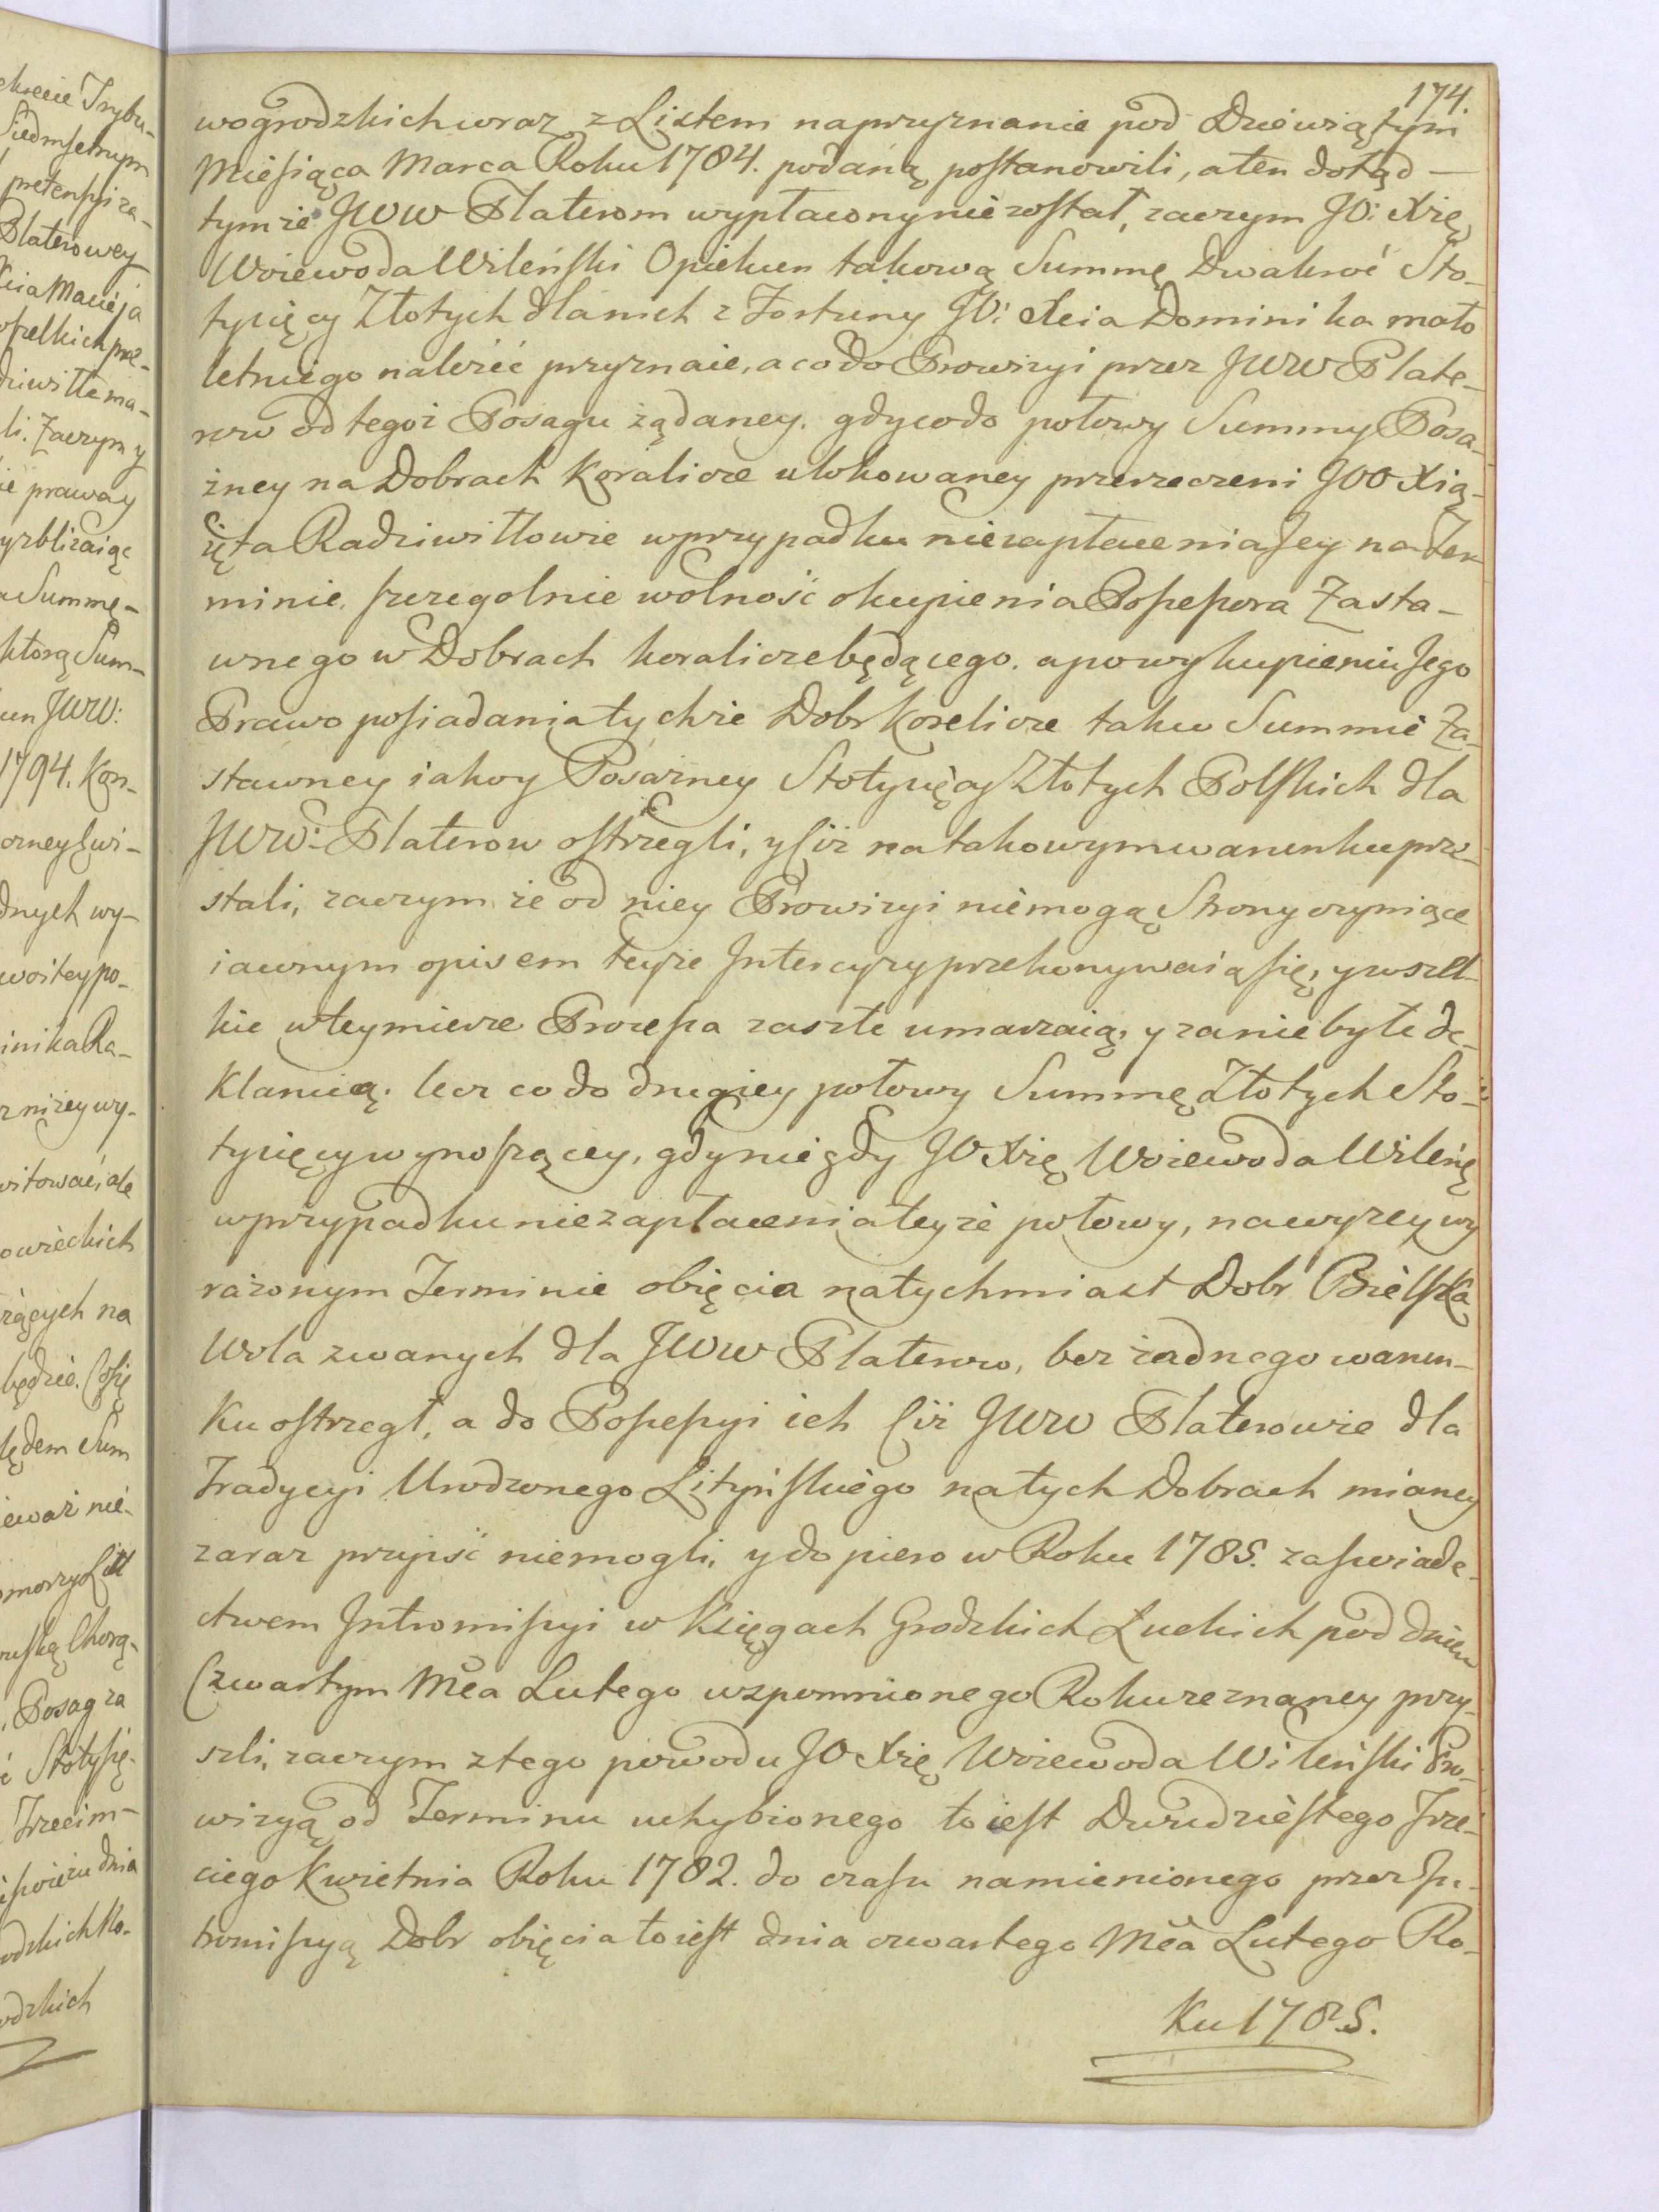 174.
wogrodzkich wraz z Listem na przyznanie pod Dziewiątym
Miesiąca Marca Roku 1784. podaną postanowili, a ten dotąd —
tymże JWW Platerom wypłacony nie został, zaczym JO: Xżę
Woiewoda Wileński Opiekun takową Summę Dwakroć Sto-
tysięcy Złotych dla nich z Fortuny JO: Xcia Dominika mało
letniego należeć przyznaie, a co do Prowizyi przez JWW Plate-
row od tegoż Posagu żądaney. gdy co do połowy Summy Posa-
żney na Dobrach Koralicze ulokowaney przerzeczeni JOO Xią-
żęta Radziwiłłowie w przypadku niezapłacenia Jey na Ter
minie, szczegolnie wolność okupienia Possessora Zasta-
wnego w Dobrach koralicze będącego. a po wykupieniu Jego
Prawo posiadania tychże Dobr Korelicze tak w Summie Za-
stawney iak w Posażney Stotysięcy Złotych Polskich dla
JWW: Platerow ostrzegli, y Ciż na takowym warunku prze-
stali, zaczym że od niey Prowizyi niemogą Strony czyniące
iawnym opisem teyże Intercyzy przekonywaią się, y wszel-
kie w teymierze Processa zaszłe umarzaią, y za niebyłe de-
klaruią. lecz co do drugiey połowy Summę Złotych Sto-
tysięcy wynoszącey, gdy niegdy JO Xżę Woiewoda Wileńs
w przypadku niezapłacenia teyże połowy, na wyżey wy
rażonym Terminie obięcia natychmiast Dobr Bielska
Wola zwanych dla JWW Platerow, bez żadnego warun-
ku ostrzegł, a do Possessyi ich Ciż JWW Platerowie dla
Tradycyi Urodzonego Lityńskiego na tych Dobrach mianey
zaraz przyiść niemogli, y dopiero w Roku 1785. zaświade-
ctwem Intromissyi w Księgach Grodzkich Łuckich pod dniem
Czwartym Mca Lutego wspomnionego Roku zeznaney przy-
szli, zaczym z tego powodu JO Xżę Woiewoda Wileński Pro-
wizyą od Terminu uchybionego to iest Dwudziestego Trze-
ciego Kwietnia Roku 1782. do czasu namienionego przez In-
tromissyą Dobr obięcia to iest dnia czwartego Mca Lutego Ro-
ku 1785.